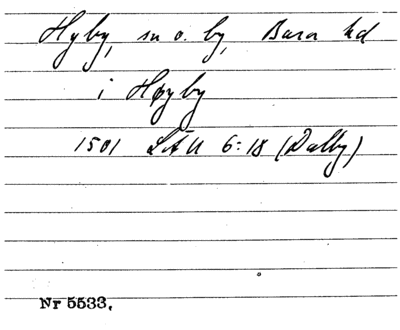 Hyby, sn o. by, Bara hd
i Høyby
1501 LÄU 6:18 (Dalby)
Nr 5533.